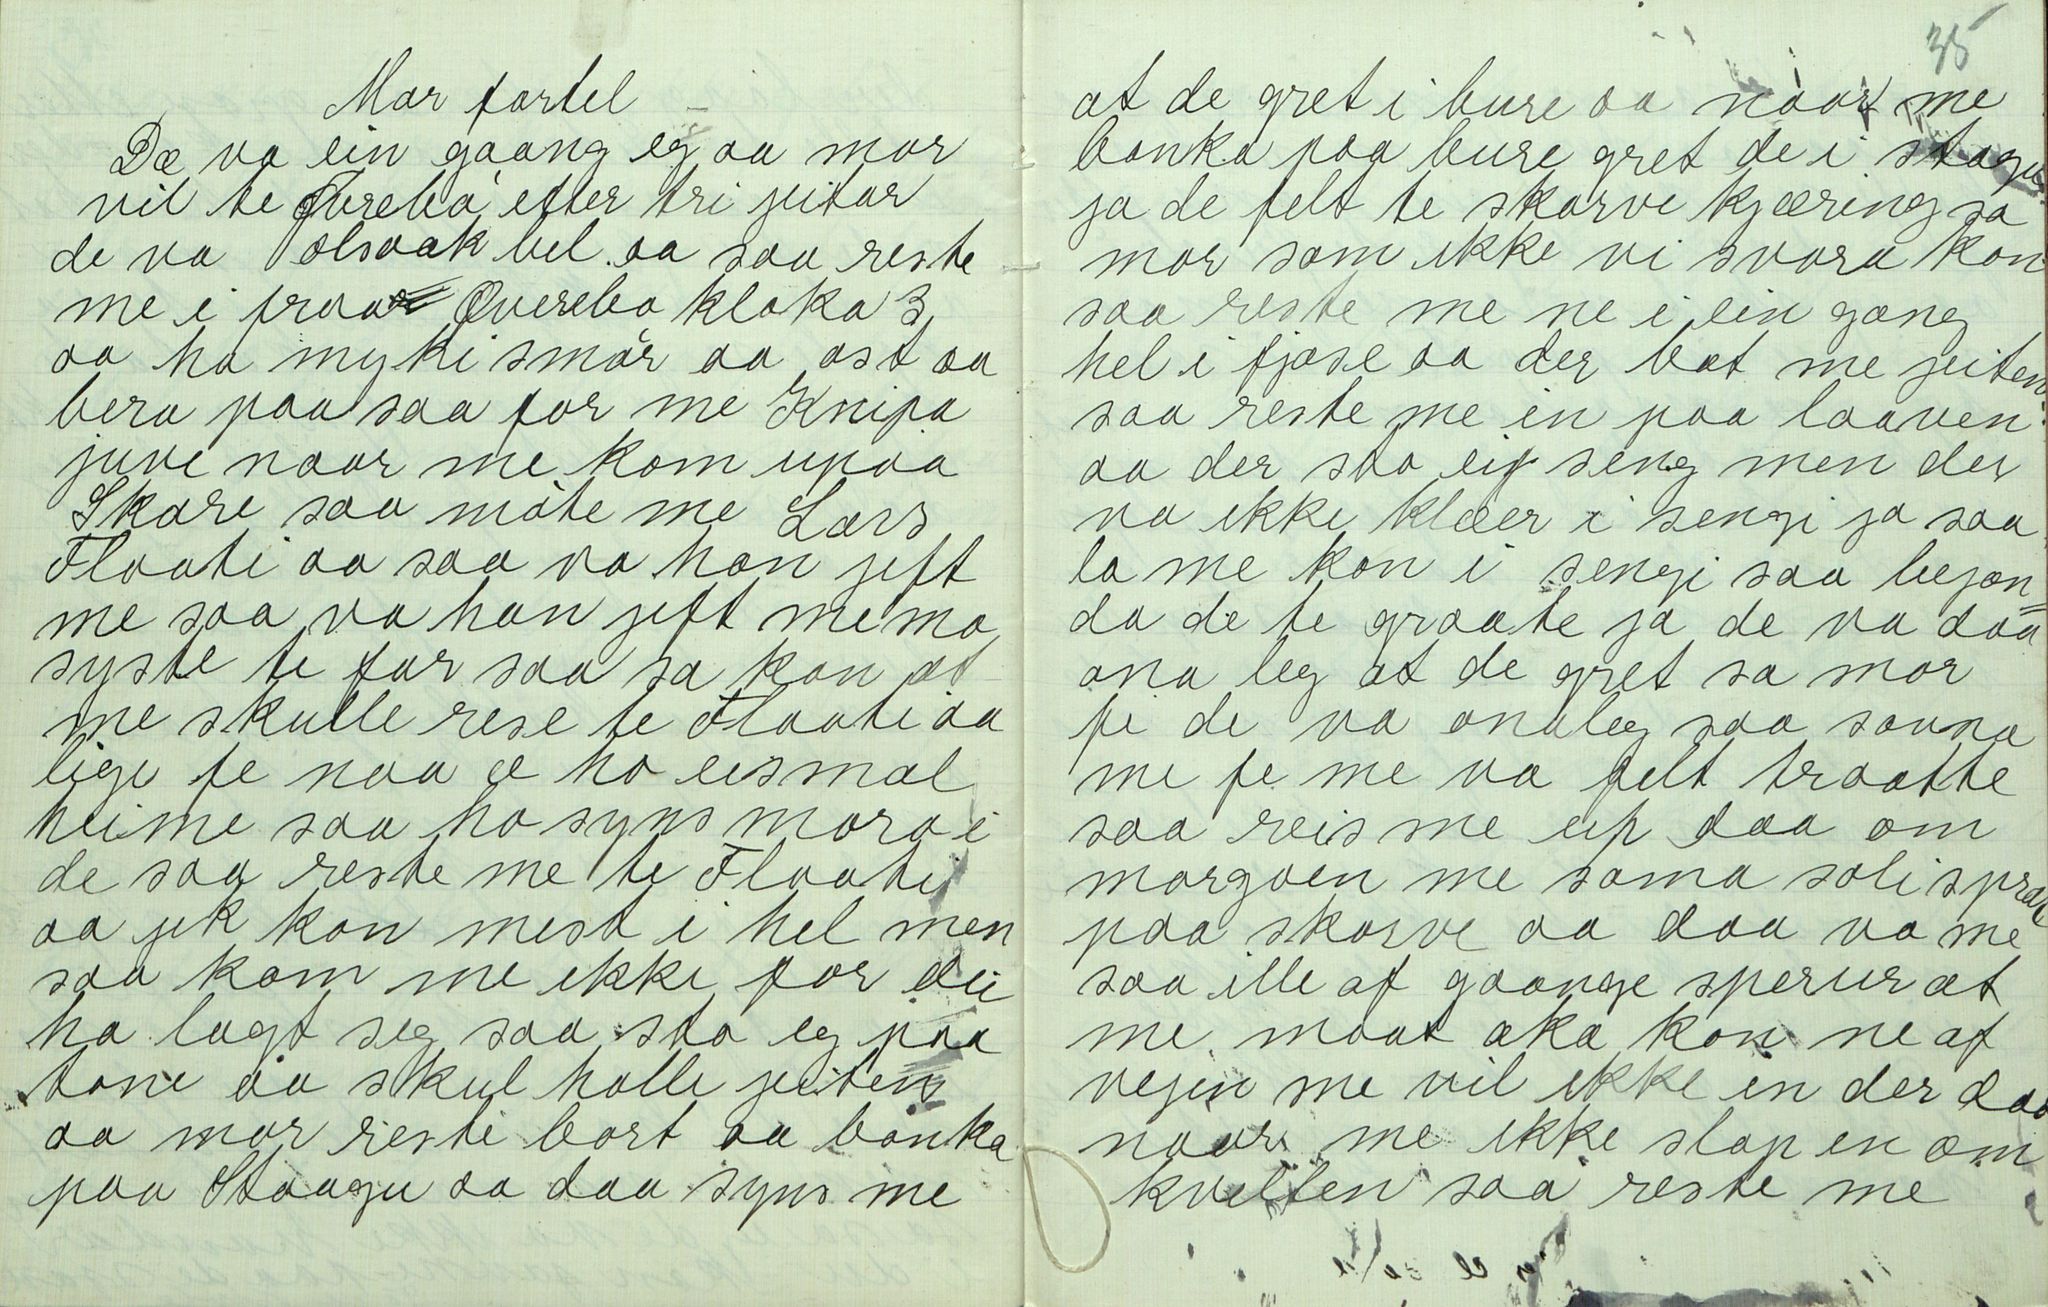 Mor fortel
De va ein gaang eg aa mor
vil te Øvrebø efter tri jeitar
de va olsaak bel aa saa reste
me i fraa Øvrebø kloka 3
aa ha myki smør aa ost aa
bera paa saa for me Knipa
juve naar me kom upaa
Skare saa møte me Lars
Flaati aa saa va han jeft
me saa va han jeft me mo
syste te far saa sa kon at
me skulle rese te Flaati aa
ligi fe naa æ ho eismal
heime saa ho syns moro i
de saa reste me te Flaati
aa jek kon mest i hel men
saa kom me ikke for dei
ha lagt seg saa sto eg paa
tone aa skul halle jeiten
aa mor reste bort aa banka
paa Staagu aa daa syns me
35
at de gret i bure aa naar me
banka paa bure gret de i stogu
ja de felt te skarve kjæring sa
mor som ikke vi svara kon
saa reste me ne i ein gang
hel i fjose aa der bat me jeiten
saa reste me in paa laaven
aa der sto ein seng men der
va ikke klæer i sengi ja saa
la me kon i sengi saa bejon=
da de te graate ja de va daa
ona leg at de gret sa mor
fe de va onaleg saa sovna
me fe me va felt traatte
saa reis me up daa om
morgoen me soma soli sprak
paa skarve aa daa va me
saa ille af gaange sperur at
me maat aka kon ne af
vejen me vil ikke in der daa
naar me ikke slap en om
kvellen saa reste me